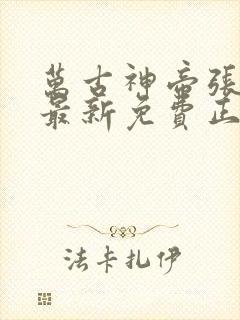 萬古神帝張
最新免費正
法卡扎伊